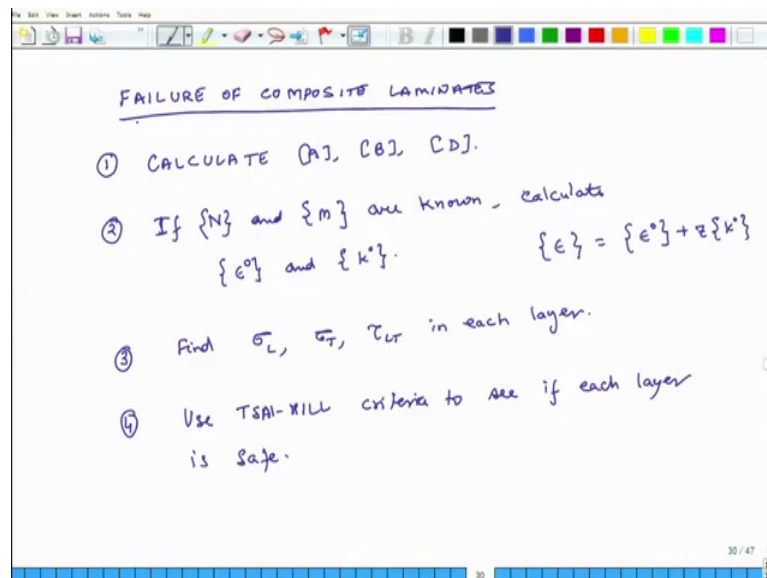 File Edit View Insert Actions Tools Help
FAILURE OF COMPOSITE LAMINATES
① CALCULATE [A], [B], [D].
② If {N} and {m} are known, calculate
{ϵ°} and {k°}.
{ϵ} = {ϵ°} + z{k°}
③ Find σL, σT, τLT in each layer.
④ Use TSAI-HILL criteria to see if each layer
is safe.
30 / 47
30